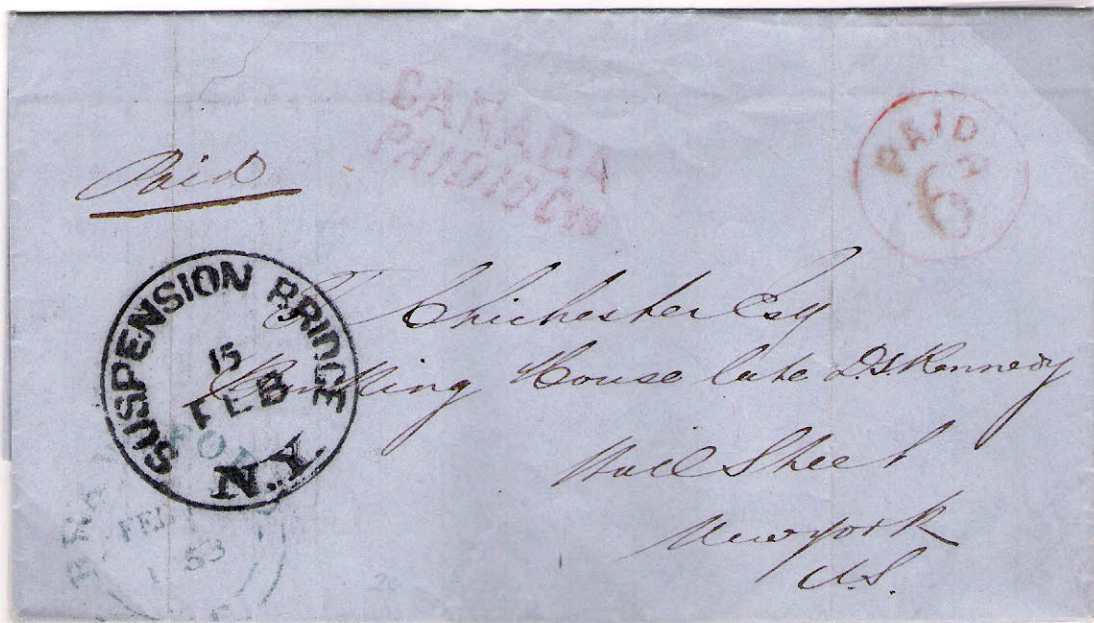 CANADA
PAID 10 Cts
PAID
6D
Paid
SUSPENSION BRIDGE
15
FEB
N.Y.
Chichester Esq
Banking House late D S Kennedy
Wall Street
New york
U.S.
FEB
53